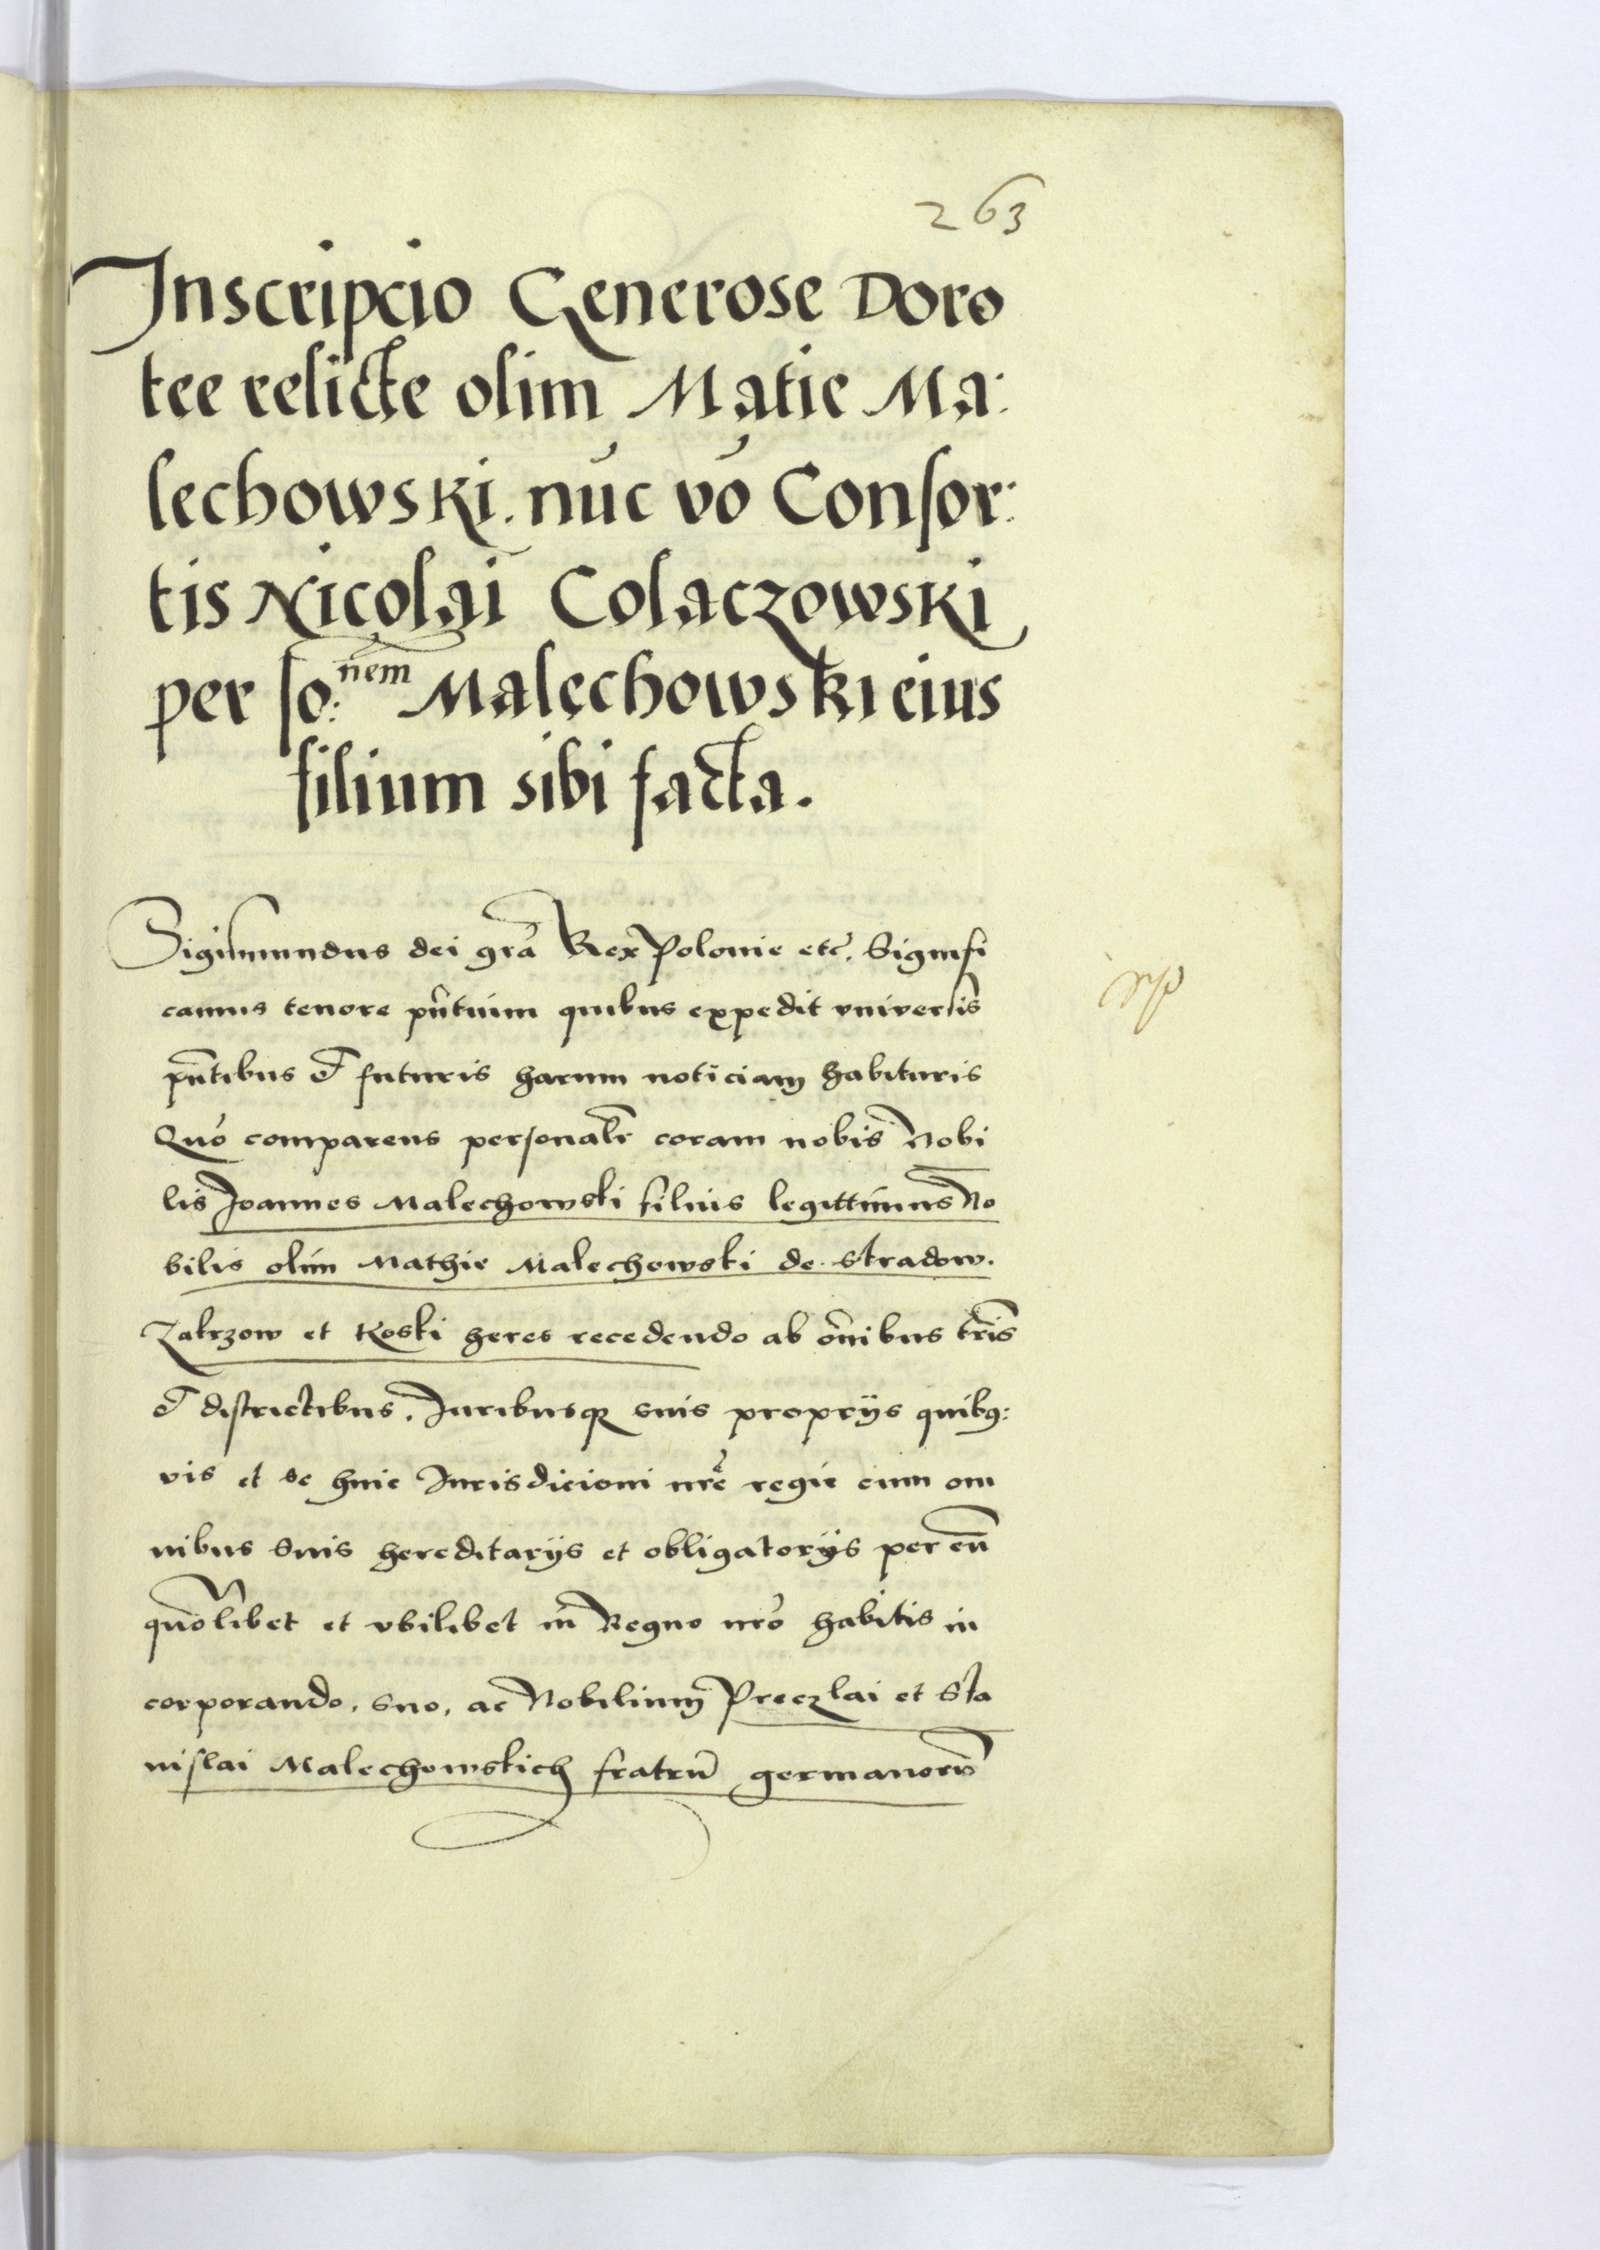 263
Inscripcio Generose Doro
tee relicte olim Matie Ma:
lechowski. nūc vo Consor:
tis Nicolai Colaczowski
per Jo:nem Malechowski eius
filium sibi facta.
Sigismundus dei gra Rex Polonie etc. Signifi
camus tenore pntium quibus expedit universis
pntibus et futuris harum noticiam habituris
Quo comparens personalr coram nobis Nobi
lis Joannes Malechowski filius legittimus No
bilis olim Mathie Malechowski de Stradow.
Zakrzow et Koski heres recedendo ab omnibus tris
et districtibus. Juribusque suis proprijs quibus:
vis et se huic Jurisdicioni nre regie cum om
nibus suis hereditarijs et obligatorijs per eu
quolibet et vbilibet in Regno nro habitis in
corporando. suo, ac Nobilium Preczlai et Sta
nislai Malechowskich fratru germanoru